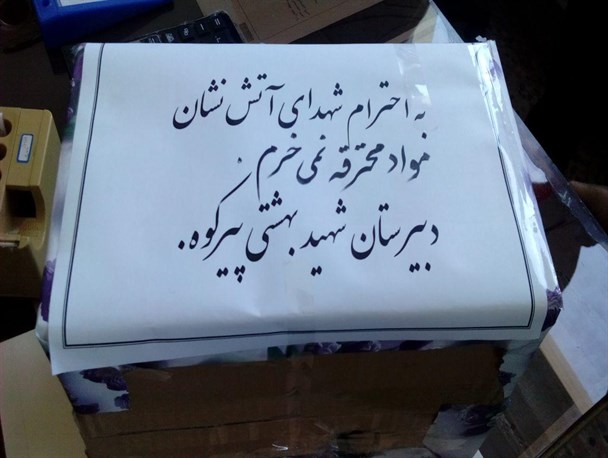 به احترام شهدای آتش نشان
مواد محترقه نمی خرم.
دبیرستان شهید بهشتی پیرکوه.